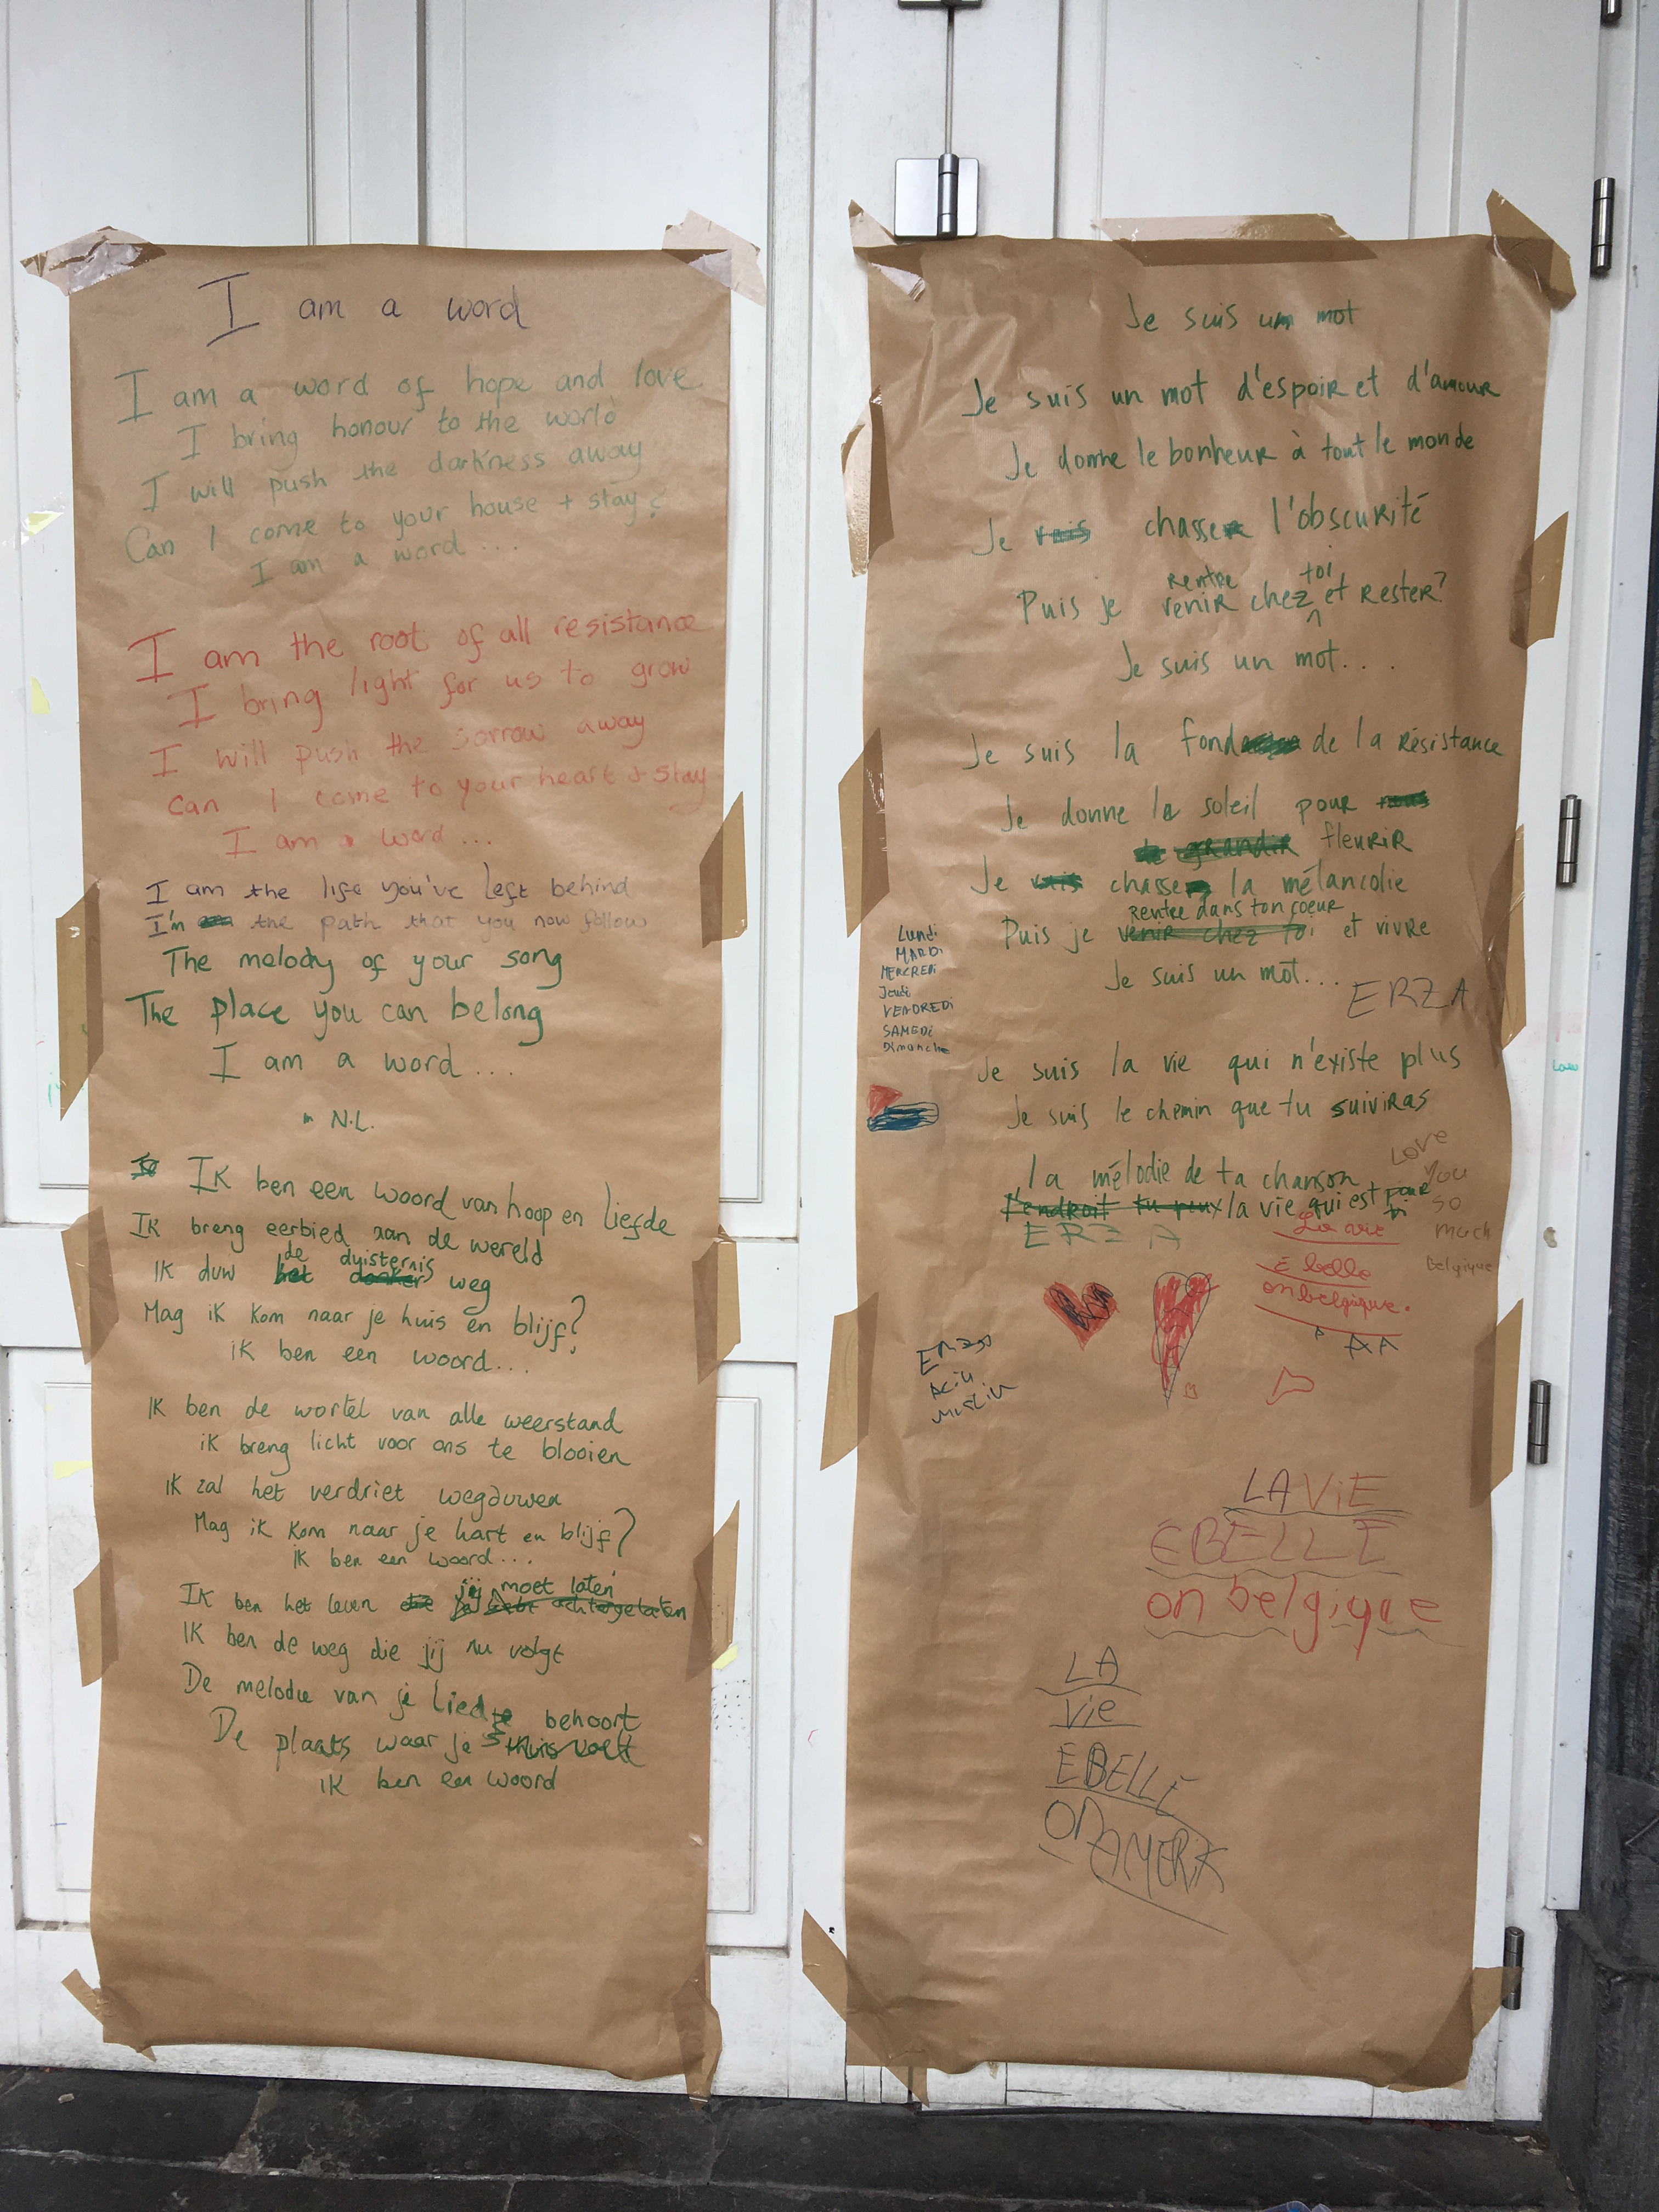 I am a word
I am a word of hope and love
I bring honour to the world
I will push the darkness away
Can I come to your house + stay?
I am a word...
I am the root of all resistance
I bring light for us to grow
I will push the sorrow away
Can I come to your heart + stay
I am a word...
I am the life you've left behind
I'm the path that you now follow
The melody of your song
The place you can belong
I am a word...
N.L.
Ik ben een woord van hoop en liefde
Ik breng eerbied aan de wereld
de duisternis
Ik duw het donker weg
Mag ik kom naar je huis en blijf?
ik ben een woord...
Ik ben de wortel van alle weerstand
ik breng licht voor ons te blooien
Ik zal het verdriet wegduwen
Mag ik kom naar je hart en blijf?
ik ben een woord...
jij moet laten
Ik ben het leven die jij hebt achtergelaten
Ik ben de weg die jij nu volgt
De melodie van je lied
behoort
De plaats waar je thuis voelt
ik ben een woord
Je suis un mot
Je suis un mot d'espoir et d'amour
Je donne le bonheur à tout le monde
Je vais chasser l'obscurité
rentre toi
Puis je venir chez et rester?
Je suis un mot...
Je suis la fond de la résistance
Je donne le soleil pour nous
grandir fleurir
Je vais chasse la mélancolie
Rentre dans ton coeur
Puis je venir chez toi et vivre
Je suis un mot...
ERZA
Lundi
MARDi
MERCREDi
Jeudi
VENDREDi
SAMEDi
Dimanche
Je suis la vie qui n'existe plus
Je suis le chemin que tu suiviras
la mélodie de ta chanson
l'endroit tu peux la vie qui est pour
ERZA
Love
You
so
much
Belgique
La vie
E belle
on belgique.
AA
LA ViE
EBELLE
on belgique
LA
Vie
EBELLE
ON AMERIK